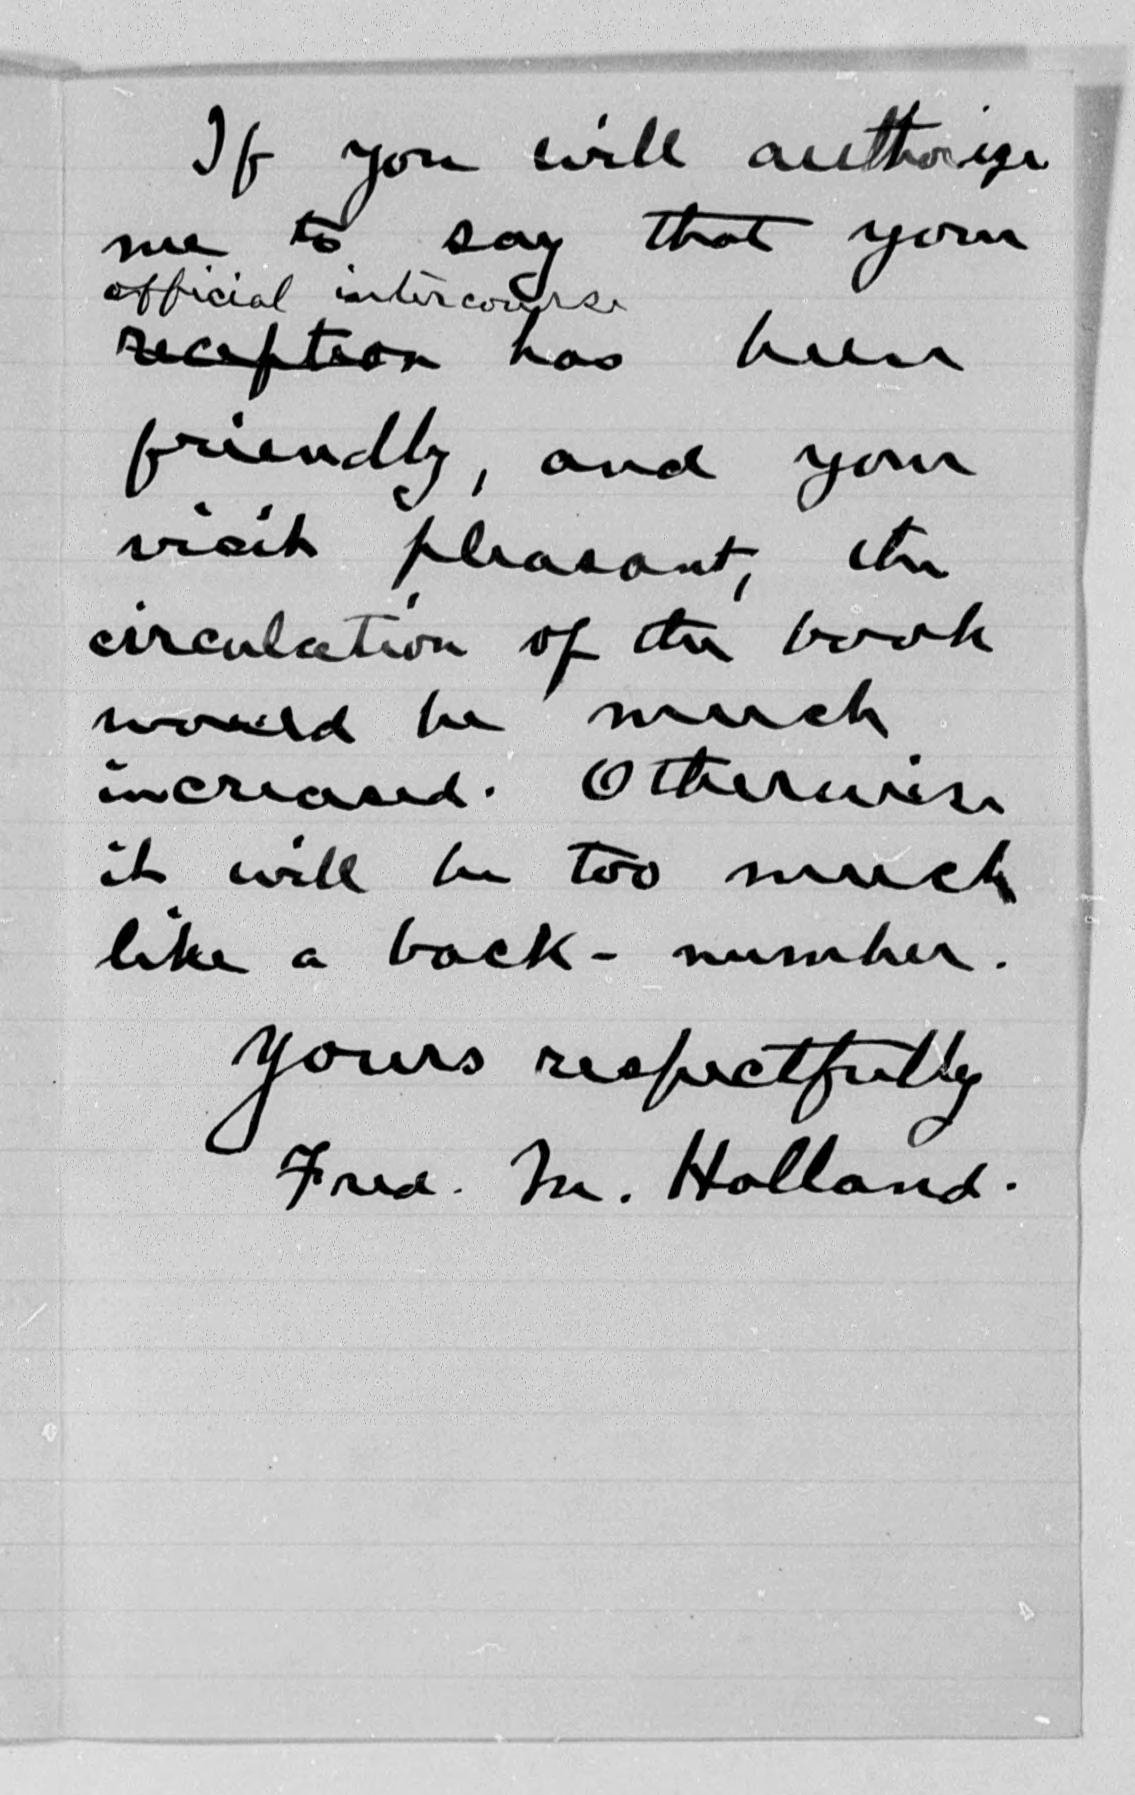 If you will authorize
me to say that your
official intercourse
reception has been
friendly, and your
visit pleasant, the
circulation of the book
would be much
increased. Otherwise
it will be too much
like a back-number.
Yours respectfully
Fred. M. Holland.